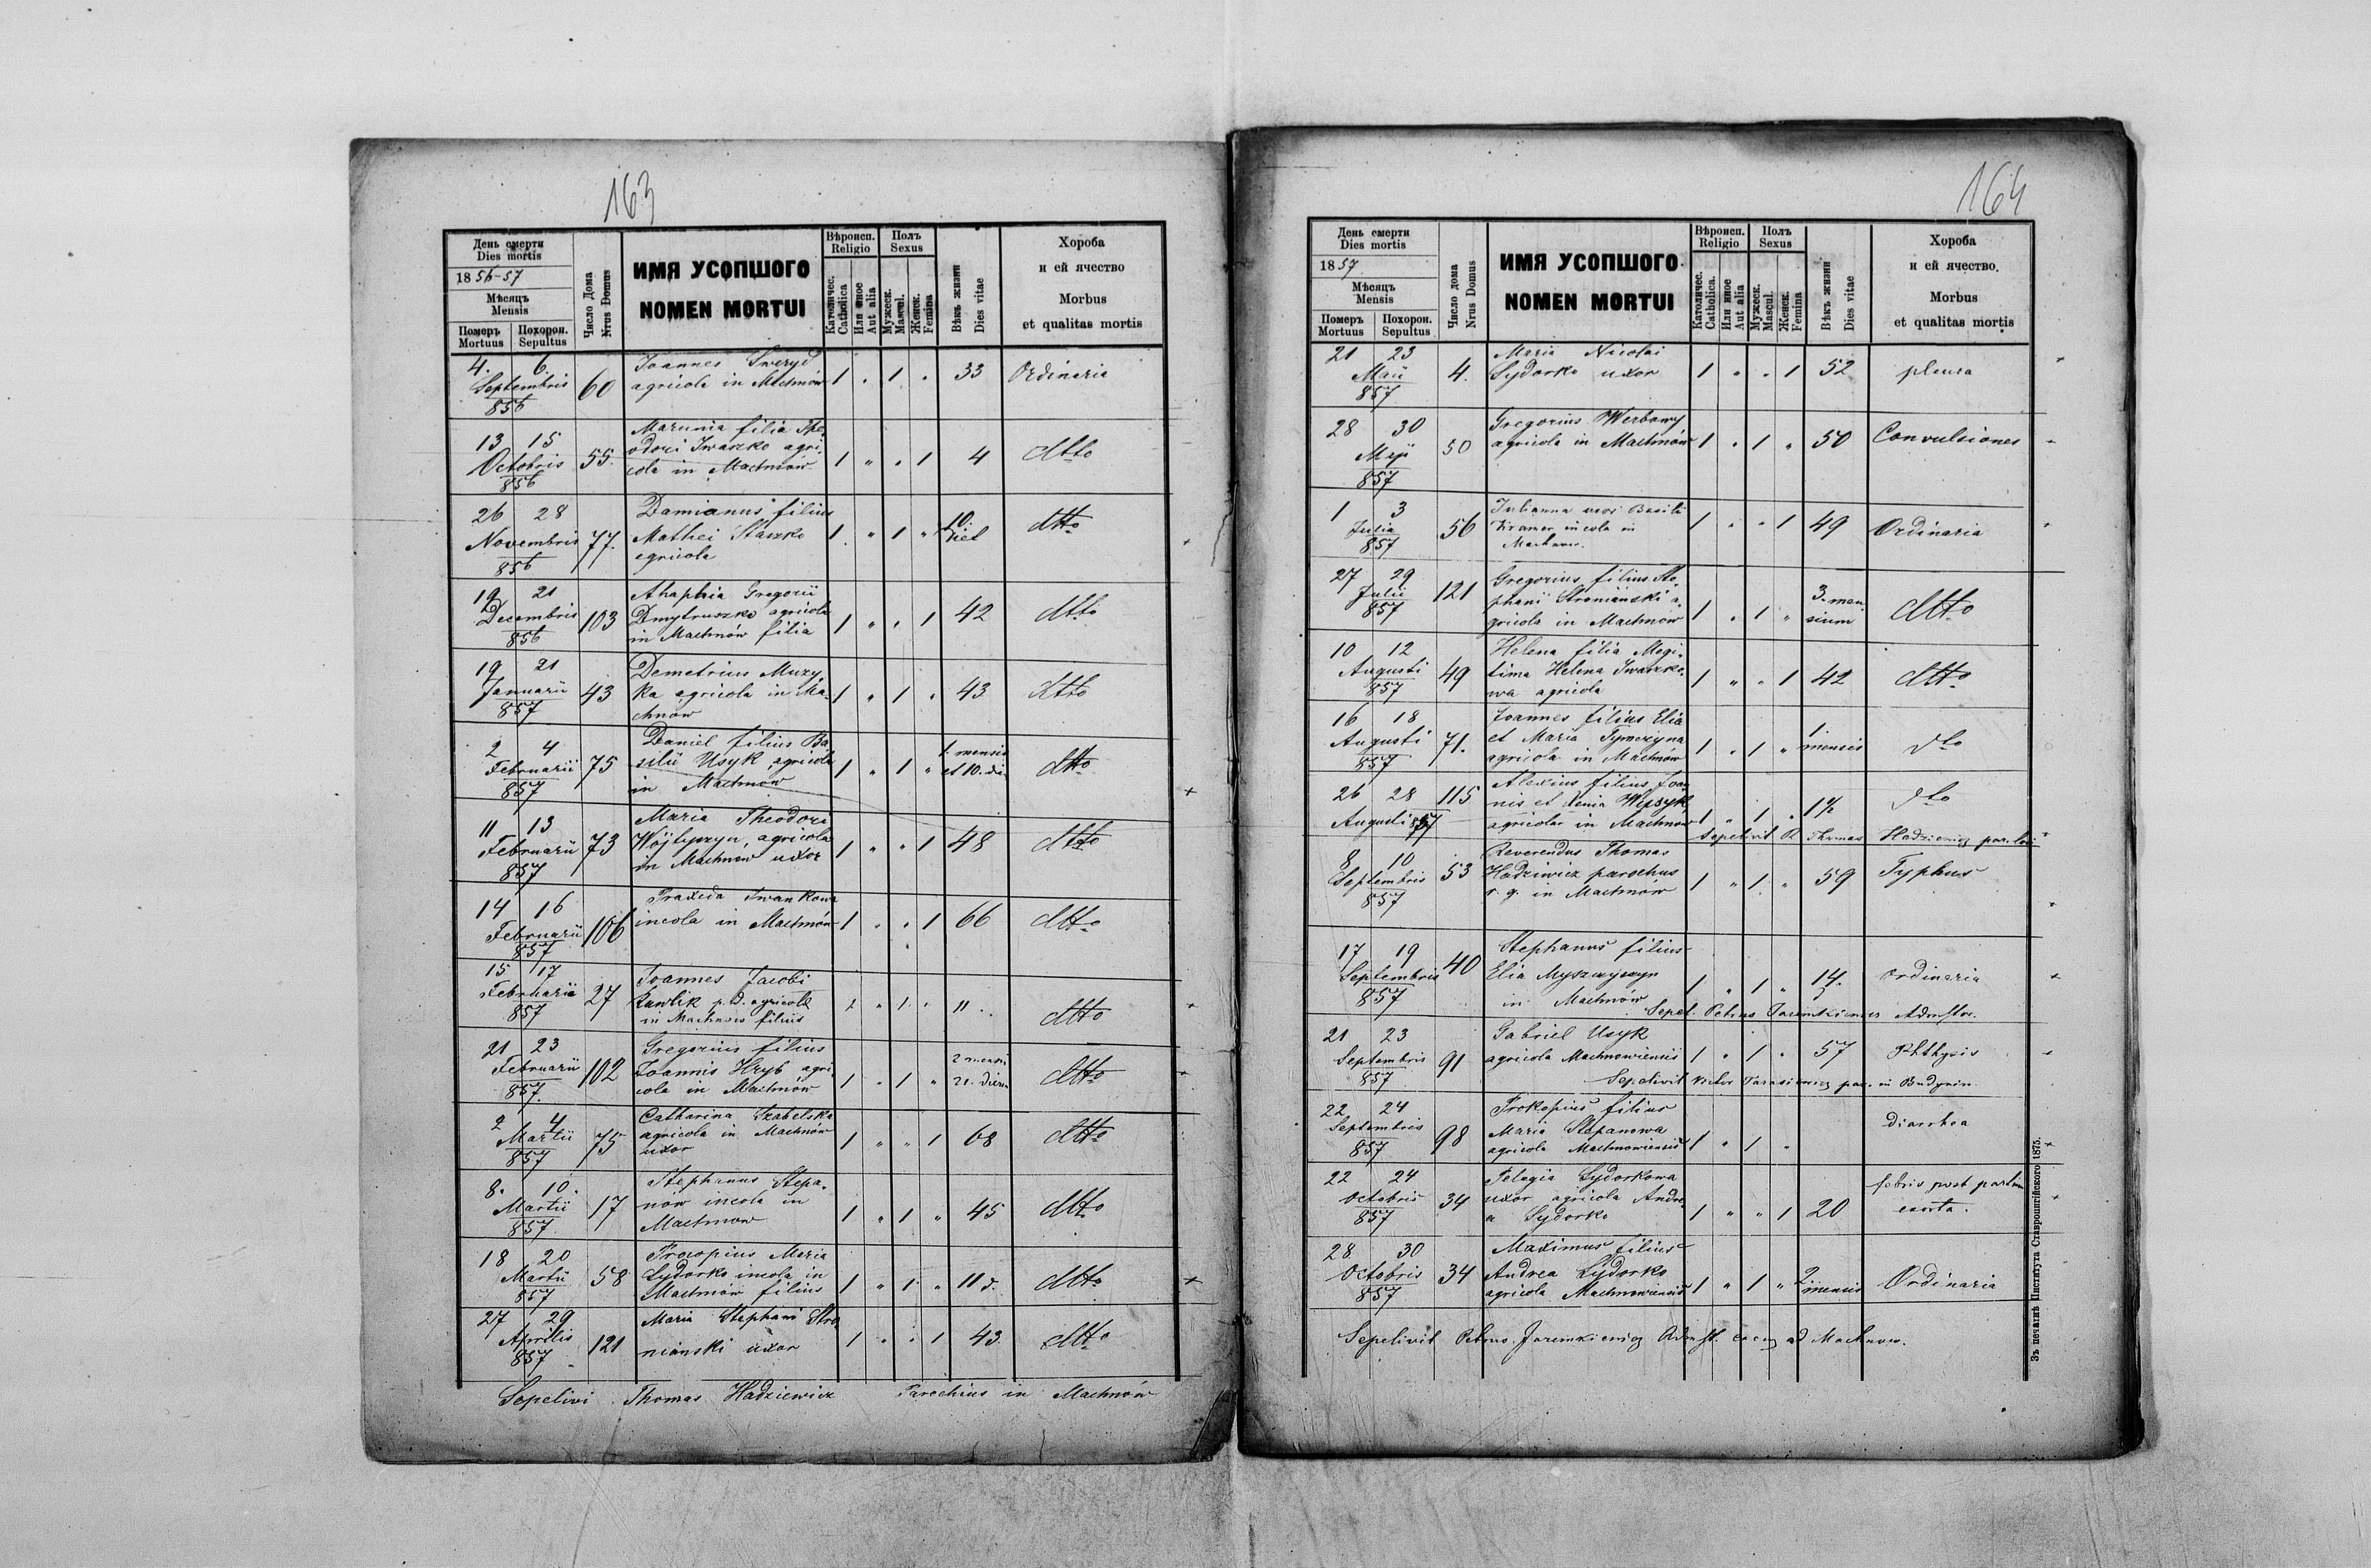 163
День смерти
Dies mortis
1856-57
Мѣсяцъ
Mensis
Померъ
Mortuus
Похорон.
Sepultus
Число Дома
Nrus Domus
ИМЯ УСОПШОГО
NOMEN MORTUI
Вѣроисп.
Religio
Католичес.
Catholica
Или иное
Aut alia
Полъ
Sexus
Мужеск.
Mascul.
Женск.
Femina
Вѣкъ жизни
Dies vitae
Хороба
и ей ячество
Morbus
et qualitas mortis
4. 6. Septembris 856 60 Joannes agricola in Machnów 1 . 1 . 33 Ordinaria
13 15 Octobris 856 55. Marunia filia The
odori Iwaszko agri
cola in Machnów 1 " . 1 4 dtto
26 28 Novembris 856 77. Damianus filius
Mathei Staszko
agricola 1 " 1 " 10. dtto
19 21 Decembris 856 103 Ahaphia Gregorii
Dmytruszko agricola
in Machnów filia 1 " . 1 42 dtto
19 21 Januarii 857 43 Demetrius Muzy
ka agricola in Ma-
chnów 1 " 1 . 43 dtto
2 4 Februarii 857 75 Daniel filius Ba
silii Usyk agricola
in Machnow 1 " 1 " 1. mensis
et 10. di. dtto
11 13 Februarii 857 73 Maria Theodori
agricola
in Machnow uxor 1 " " 1 48 dtto
14 16 Februarii 857 106 Praxeda Iwankowa
incola in Machnów 1 . . 1 66 dtto
15 17 Februarii 857 27 Joannes Jacobi
Pawlik p. d. agricola
in Machnow filius 1 " 1 " 11 dtto
21 23 Februarii 857. 102 Gregorius filius
Joannis Hryb agri
cola in Machnów 1 . 1 " 2 mensi
21. dierum dtto
2 4 Martii 857 75 Catharina Szabelska
agricola in Machnów
uxor 1 " " 1 68 dtto
8. 10. Martii 857 17 Stephanus Stepa-
now incola in
Machnow 1 " 1 " 45 dtto
18 20 Martii 857 58 Procopius Maria
Sydorko incola in
Machnów filius 1 " 1 " 11 d. dtto
27 29 Aprilis 857 121 Maria Stephani Stro
nianski uxor 1 . . 1 43. dtto
Sepelivi Thomas Hadziewicz Parochus in Machnów
164
День смерти
Dies mortis
1857
Мѣсяцъ
Mensis
Померъ
Mortuus
Похорон.
Sepultus
Число дома
Nrus Domus
ИМЯ УСОПШОГО
NOMEN MORTUI
Вѣроисп.
Religio
Католичес.
Catholica.
Или иное
Aut alia
Полъ
Sexus
Мужеск.
Mascul.
Женск.
Femina
Вѣкъ жизни
Dies vitae
Хороба
и ей ячество.
Morbus
et qualitas mortis
21 23 Maii 857 4. Maria Nicolai
Sydorko uxor 1 " . 1 52 pleura
28 30 Maji 857 50 Gregorius Werbowy
agricola in Machnów 1 . 1 " 50 Convulsiones
1 3 Julia 857 56 Julianna uxor Basili
Kramer incola in
Machnow. 1 . . 1 49 Ordinaria
27 29 Julii 857 121 Gregorius filius Ste
phani Stronianski a-
gricola in Machnow 1 . 1 " 3. men-
sium dtto
10 12 Augusti 857 49 Helena filia
Helena Iwaszko-
wa agricola 1 " . 1 42 dtto
16 18 Augusti 857 71. Joannes filius Elia
et Maria Tymczyna
agricola in Machnów 1 . 1 " 1. mensis dto
26 28 Augusti 857 115 Alexius filius Joan
nis et Xenia
agricola in Machnow 1 " 1 . 1 ½ dto
Sepelivit R. Thomas Hadziewicz par. loci
8 10 Septembris 857 53 Reverendus Thomas
Hadziewicz parochus
r. g. in Machnów 1 " 1. " 59 Typhus
17 19 Septembris 857 40 Stephanus filius
Elia Myszczyszyn
in Machnów 1 " 1 " 14. ordinaria
Sepel. Petrus Jaremkiewicz Admstor.
21 23 Septembris 857 91 Gabriel Usyk
agricola Machnowiensis 1 . 1 . 57 Phthysis
Sepelivit Victor Tarasiewicz par. in Budynin
22 24 Septembris 857 98 Prokopius filius
Maria Stepanowa
agricola Machnowiensis 1 . 1 . diarrhea
22 24 Octobris 857 34 Pelagia Sydorkowa
uxor agricola Andre
a Sydorko 1 " " 1 20 febris post partum
exorta.
28 30 Octobris 857 34 Maximus filius
Andrea Sydorko
agricola Machnowiensis 1 " 1 " 2 mensis Ordinaria
Sepelivit Petrus Jaremkiewicz Admst. ad Machnow.
Зъ печатнѣ Института Ставропигійского 1875.